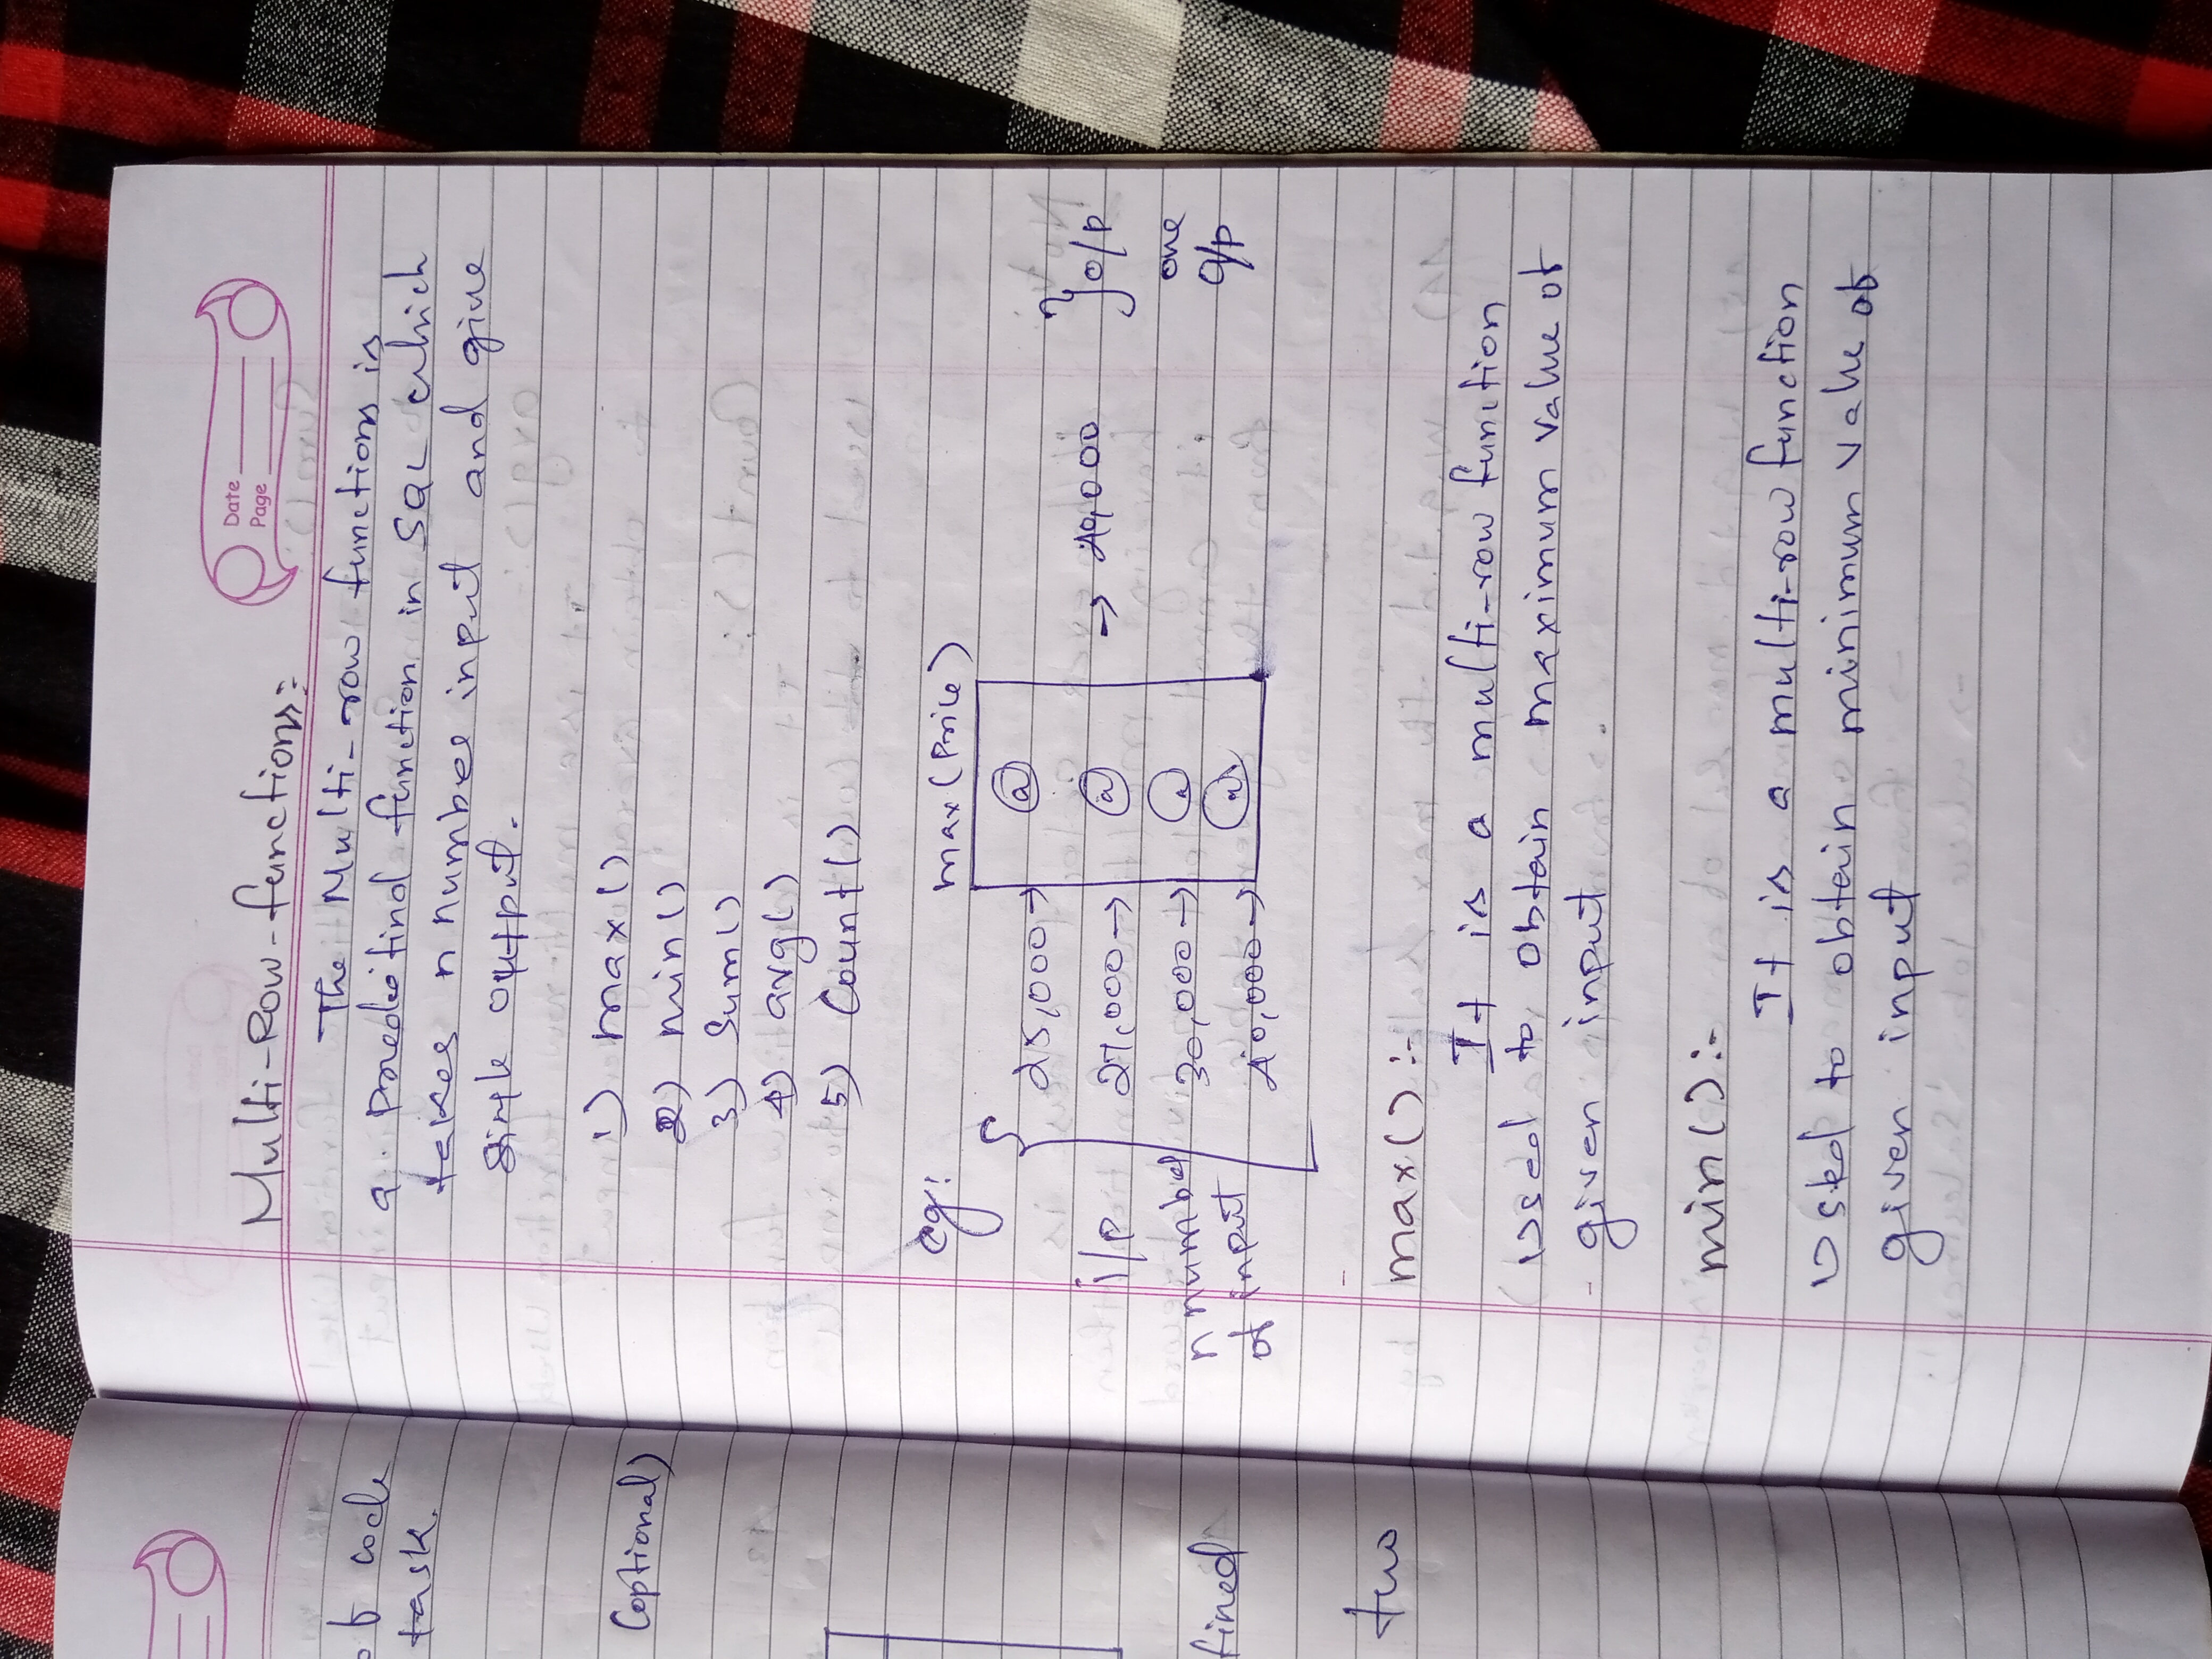 of code
task.
(optional)
fined
two
Date
Page
Multi-Row-functions:
The Multi-row functions is
a predefind function in SQL which
takes n number input and give
single output.
1) max()
2) min()
3) Sum()
4) avg()
5) Count()
eg:
max(Price)
25,000→ a
i/p 27,000→ a → 40,000 } o/p
n number 30,000→ a one
of input 40,000→ a o/p
max():-
It is a multi-row function
Used to obtain maximum value of
given input.
min():-
It is a multi-row function
Used to obtain minimum value of
given input